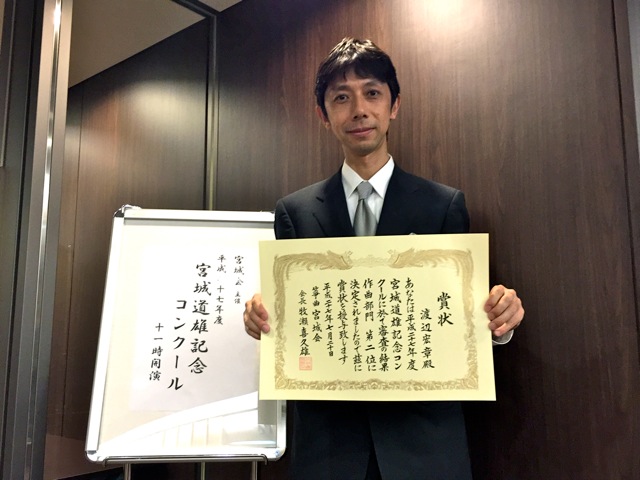 宮城会主催
平成 十七年度
宮城道雄記念
コンクール
十一時開演
賞状
渡辺宏章殿
あなたは平成二十七年度
宮城道雄記念コン
クールに於て審査の結果
作曲部門 第二位に
決定されましたので茲に
賞状を授与致します
平成二十七年七月二十日
箏曲宮城会
会長 牧瀬喜久雄